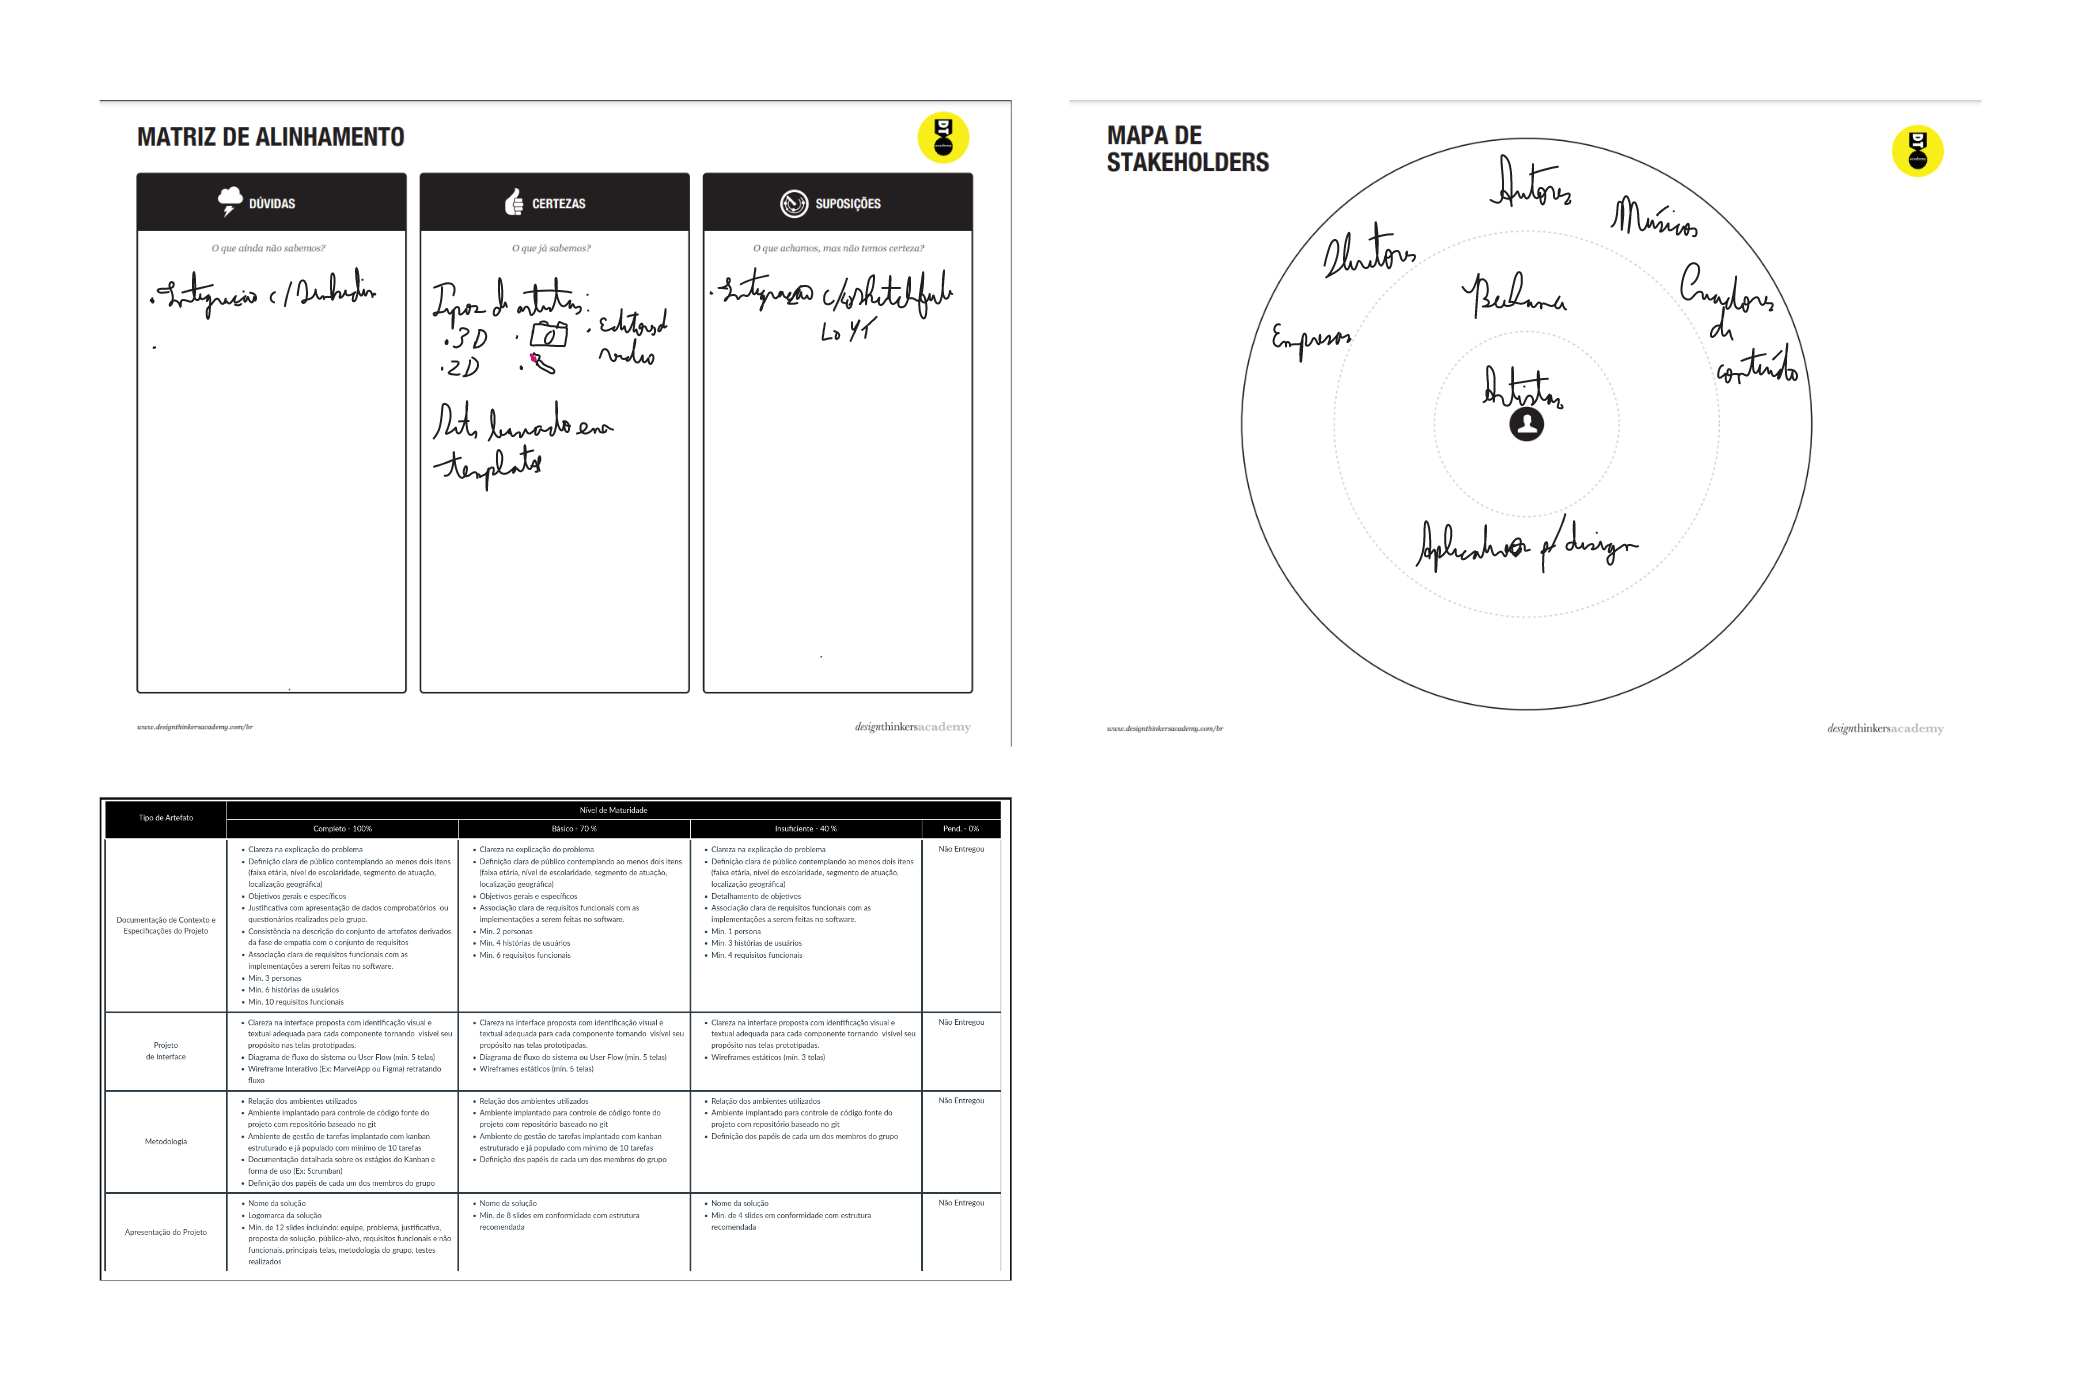 MATRIZ DE ALINHAMENTO
DÚVIDAS
O que ainda não sabemos?
• Integração c/ Linkedin
CERTEZAS
O que já sabemos?
Tipos de artistas:
• 3D
• 2D
• Editores d
vídeo
Port. baseado em
template
SUPOSIÇÕES
O que achamos, mas não temos certeza?
• Integração c/ o Sketchfab
Lo YT
www.designthinkersacademy.com/br
designthinkersacademy
MAPA DE
STAKEHOLDERS
DT
academy
Autores
Músicos
Diretores
Behance
Criadores
de
conteúdo
Empresas
Artistas
Aplicativos p/ design
www.designthinkersacademy.com/br
designthinkersacademy
Tipo de Artefato
Nível de Maturidade
Completo - 100%
Básico - 70 %
Insuficiente - 40 %
Pend. - 0%
Documentação de Contexto e
Especificações do Projeto
• Clareza na explicação do problema
• Definição clara de público contemplando ao menos dois itens
(faixa etária, nível de escolaridade, segmento de atuação,
localização geográfica)
• Objetivos gerais e específicos
• Justificativa com apresentação de dados comprobatórios ou
questionários realizados pelo grupo.
• Consistência na descrição do conjunto de artefatos derivados
da fase de empatia com o conjunto de requisitos
• Associação clara de requisitos funcionais com as
implementações a serem feitas no software.
• Min. 3 personas
• Min. 6 histórias de usuários
• Min. 10 requisitos funcionais
• Clareza na explicação do problema
• Definição clara de público contemplando ao menos dois itens
(faixa etária, nível de escolaridade, segmento de atuação,
localização geográfica)
• Objetivos gerais e específicos
• Associação clara de requisitos funcionais com as
implementações a serem feitas no software.
• Min. 2 personas
• Min. 4 histórias de usuários
• Min. 6 requisitos funcionais
• Clareza na explicação do problema
• Definição clara de público contemplando ao menos dois itens
(faixa etária, nível de escolaridade, segmento de atuação,
localização geográfica)
• Detalhamento de objetivos
• Associação clara de requisitos funcionais com as
implementações a serem feitas no software.
• Min. 1 persona
• Min. 3 histórias de usuários
• Min. 4 requisitos funcionais
Não Entregou
Projeto
de Interface
• Clareza na interface proposta com identificação visual e
textual adequada para cada componente tornando visível seu
propósito nas telas prototipadas.
• Diagrama de fluxo do sistema ou User Flow (min. 5 telas)
• Wireframe Interativo (Ex: MarvelApp ou Figma) retratando
fluxo
• Clareza na interface proposta com identificação visual e
textual adequada para cada componente tornando visível seu
propósito nas telas prototipadas.
• Diagrama de fluxo do sistema ou User Flow (min. 5 telas)
• Wireframes estáticos (min. 5 telas)
• Clareza na interface proposta com identificação visual e
textual adequada para cada componente tornando visível seu
propósito nas telas prototipadas.
• Wireframes estáticos (min. 3 telas)
Não Entregou
Metodologia
• Relação dos ambientes utilizados
• Ambiente implantado para controle de código fonte do
projeto com repositório baseado no git
• Ambiente de gestão de tarefas implantado com kanban
estruturado e já populado com mínimo de 10 tarefas
• Documentação detalhada sobre os estágios do Kanban e
forma de uso (Ex: Scrumban)
• Definição dos papéis de cada um dos membros do grupo
• Relação dos ambientes utilizados
• Ambiente implantado para controle de código fonte do
projeto com repositório baseado no git
• Ambiente de gestão de tarefas implantado com kanban
estruturado e já populado com mínimo de 10 tarefas
• Definição dos papéis de cada um dos membros do grupo
• Relação dos ambientes utilizados
• Ambiente implantado para controle de código fonte do
projeto com repositório baseado no git
• Definição dos papéis de cada um dos membros do grupo
Não Entregou
Apresentação do Projeto
• Nome da solução
• Logomarca da solução
• Min. de 12 slides incluindo: equipe, problema, justificativa,
proposta de solução, público-alvo, requisitos funcionais e não
funcionais, principais telas, metodologia do grupo, testes
realizados
• Nome da solução
• Min. de 8 slides em conformidade com estrutura
recomendada
• Nome da solução
• Min. de 4 slides em conformidade com estrutura
recomendada
Não Entregou